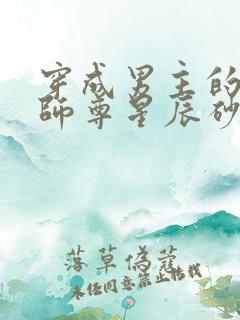 穿成男主的
師尊星辰砂
落草偽蔻
未經同意禁止轉載